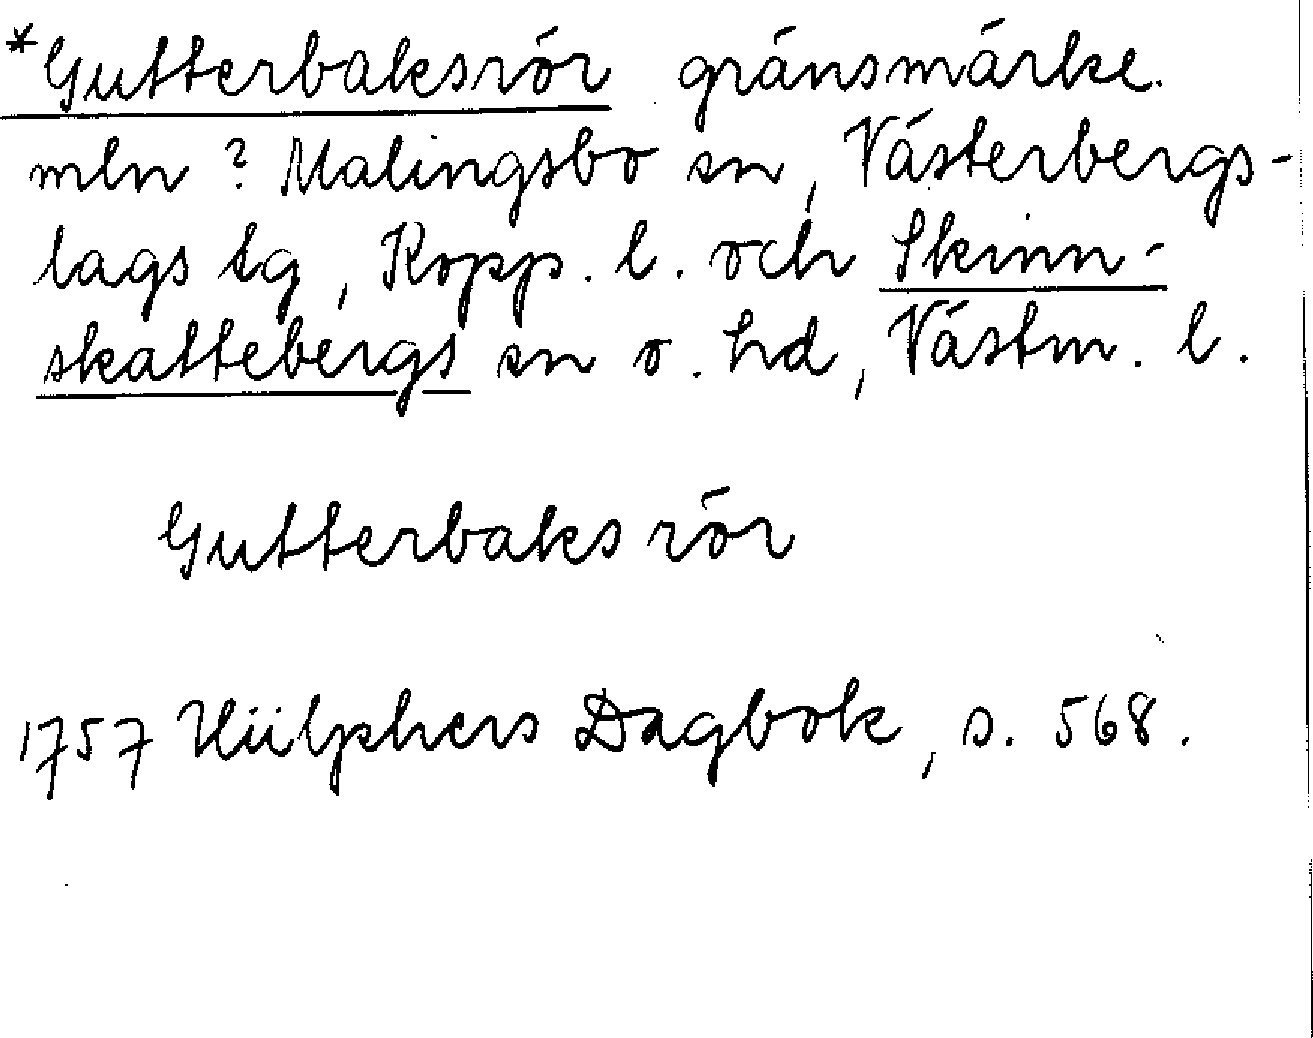 *Gutterbaksrör gränsmärke.
mln ? Malingsbo sn, Västerbergs-
lags tg, Kopp. l. och Skinn-
skattebergs sn o. hd, Västm. l.
Gutterbaks rör
1757 Hülphers Dagbok, s. 568.